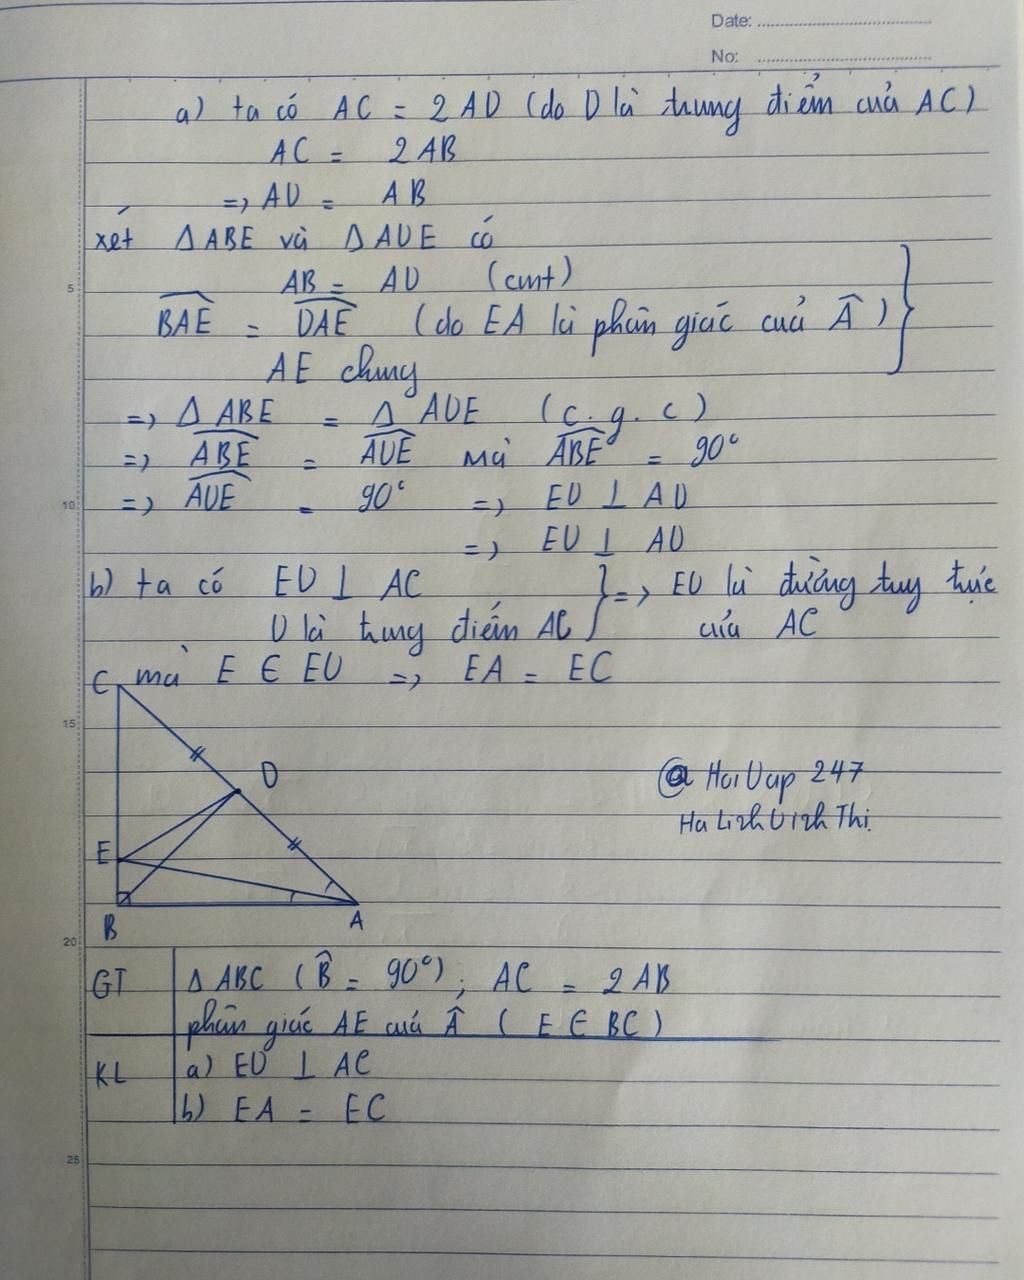 Date:
No:
a) ta có AC = 2 AD (do D là trung điểm của AC)
AC = 2AB
=> AD = AB
xét Δ ABE và Δ ADE có
AB = AD (cmt)
BAE = DAE (do EA là phân giác của Â)
AE chung
=> Δ ABE = Δ ADE (c.g.c)
=> ABE = ADE mà ABE = 90°
=> ADE = 90° => ED ⊥ AD
=> ED ⊥ AD
b) ta có ED ⊥ AC } => ED là đường tuy trực
D là trung điểm AC của AC
mà E ∈ ED => EA = EC
C
D
E
B
A
@ Hoi Dap 247
Ha Linh Dinh Thi
GT Δ ABC (B̂ = 90°); AC = 2 AB
phân giác AE của  (E ∈ BC)
KL a) ED ⊥ AC
b) EA = EC
5
10
15
20
25